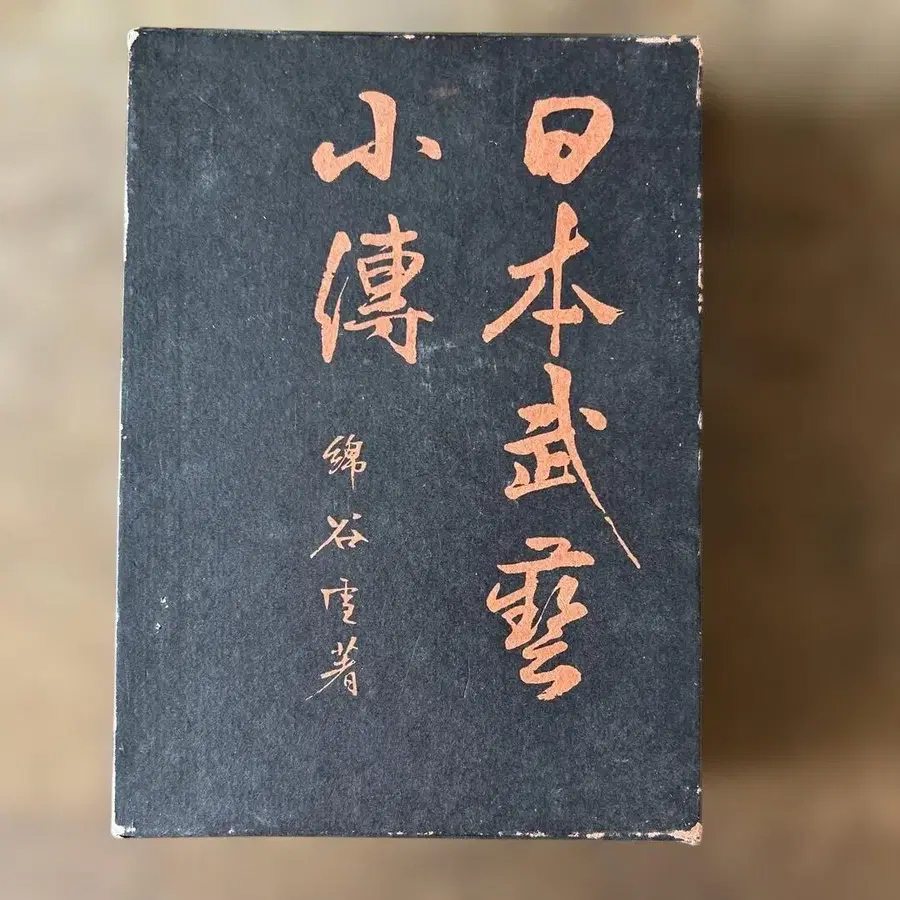 日本武藝
小傳
綿谷雪著